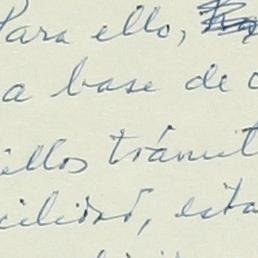 Para ello,
a base de
illos trámit
cilidad, esta